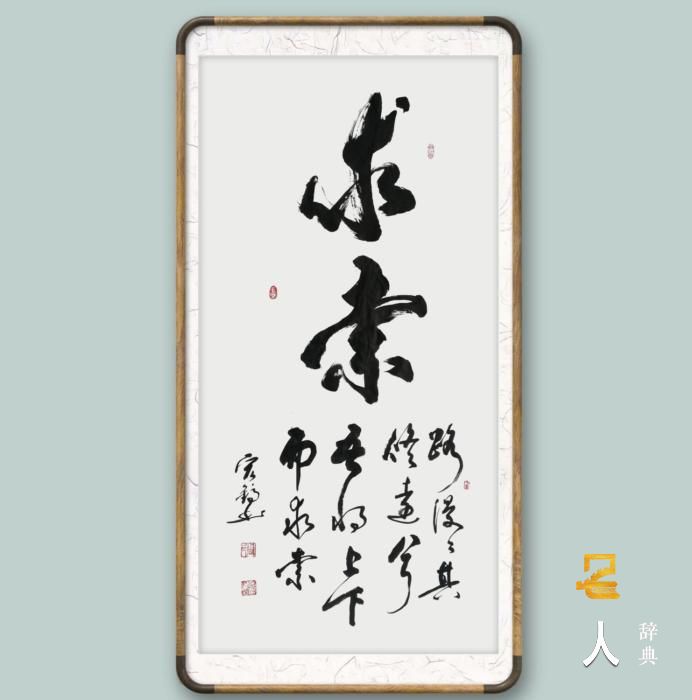 求索
路漫々其
修远兮
吾将上下
而求索
名人
辞典